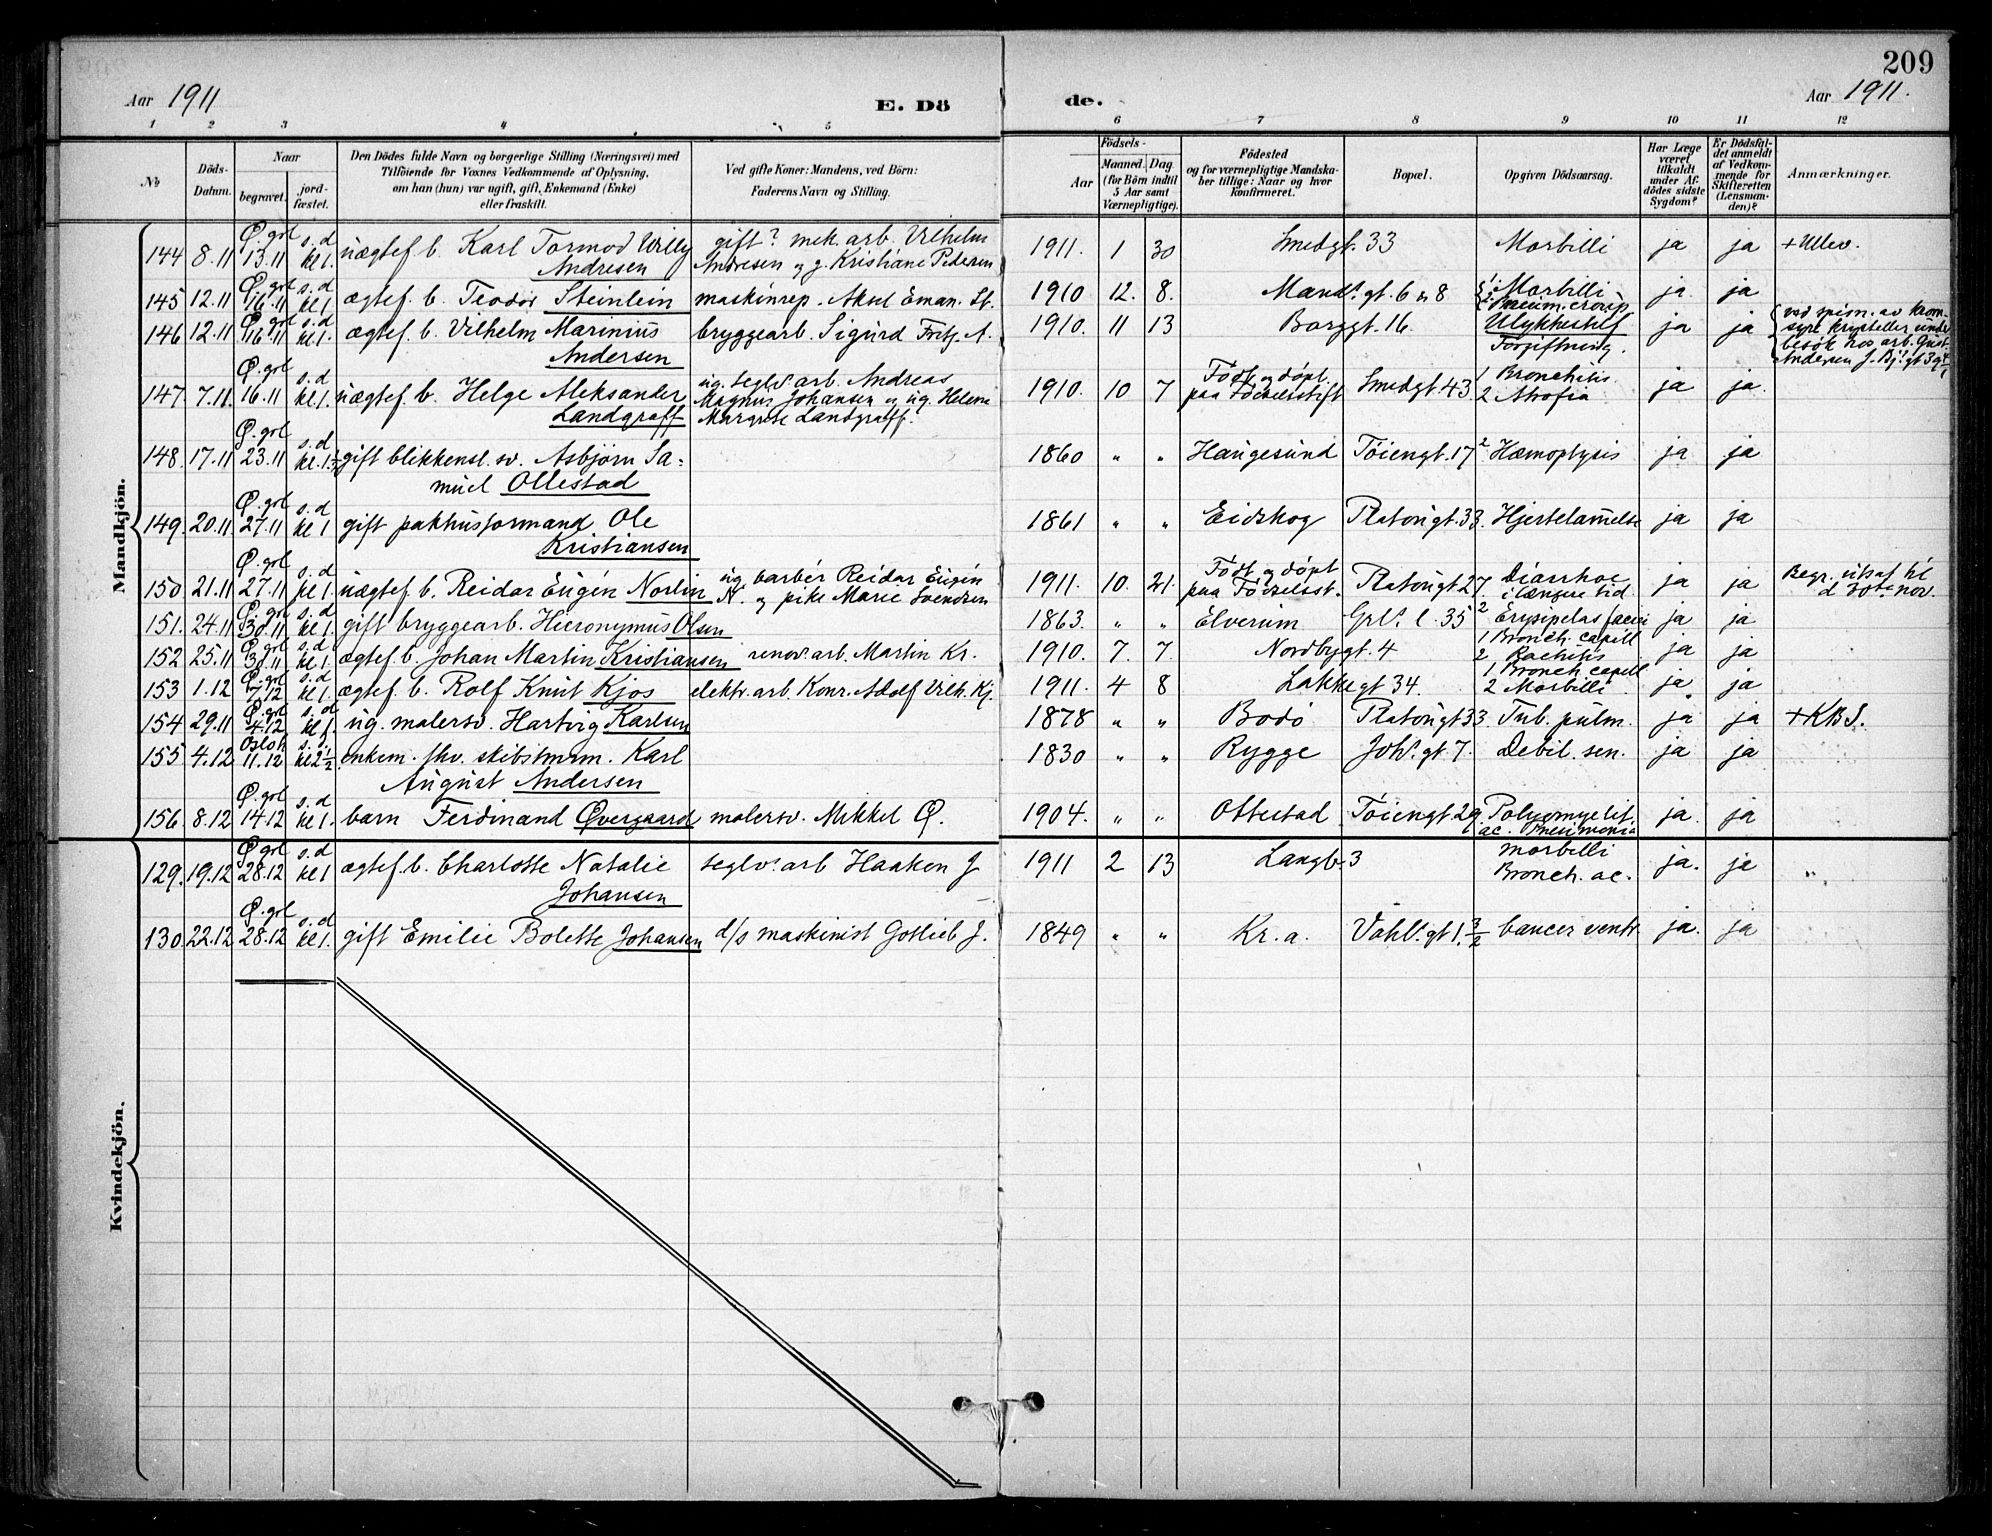 209
Aar 1911
E. Dö
de.
Aar 1911.
1 2 3 4 5 6 7 8 9 10 11 12
No
Döds-Datum.
Naar
begravet.
jord-fæstet.
Den Dödes fulde Navn og borgerlige Stilling (Næringsvei) med
Tilföiende for Voxnes Vedkommende af Oplysning,
om han (hun) var ugift, gift, Enkemand (Enke)
eller fraskilt.
Ved gifte Koner: Mandens, ved Börn:
Faderens Navn og Stilling.
Födsels-
Aar
Maaned. Dag.
(for Börn indtil
5 Aar samt
Værnepligtige).
Födested
og for værnepligtige Mandska-
ber tillige: Naar og hvor
konfirmeret.
Bopæl.
Opgiven Dödsaarsag.
Har Læge
været
tilkaldt
under Af-
dödes sidste
Sygdom?
Er Dödsfal-
det anmeldt
af Vedkom-
mende for
Skifteretten
(Lensman-
den)?
Anmærkninger.
Mandkjön.
144 8.11 Ø. grl 13.11 s.d kl 1. uægtef. b. Karl Tormod Willy Andresen gift? mek. arb. Vilhelm Andresen og g. Kristiane Pedersen 1911. 1 30 Smedgt. 33 Morbilli ja ja + Ullev.
145 12.11 Ø. grl 16.11 s.d kl 1. ægtef. b. Teodor Steinlein maskinrep. Aksel Eman. St. 1910 12. 8. Mand. gt. 6 8 1 Morbilli 2 Pneum. croup. ja ja
146 12.11 Ø. grl 16.11 s.d kl 1. ægtef. b. Vilhelm Marinius Andersen bryggearb. Sigurd Fritz A. 1910. 11 13 Borggt. 16. Ulykkestilf Forgiftning. ja ja ved spisn. av krom-
syre krysteller under
besök hos arb. Gust.
Andersen
147 7.11. Ø. grl 16.11 s.d kl 1. uægtef. b. Helge Aleksander Landgraff ug. teglv. arb. Andreas Magnus Johansen og ug. Helene Margrete Landgraff. 1910. 10 7 Födt og döpt paa Födselsstift Smedgt. 43 1 Bronchitis. 2 Atrofia ja ja.
148. 17.11 Ø. grl 23.11 s.d kl. 1 gift blikkensl. sv. Asbjörn Sa=
muel Ollestad 1860 " " Haugesund Töiengt. 17 2 Hæmoptysis ja ja
149. 20.11 Ø. grl 27.11 s.d kl 1 gift pakhusformand Ole Kristiansen 1861 " " Eidskog Platougt. 33. Hjertelammelse ja ja
150. 21.11 Ø. grl 27.11 s.d kl 1. uægtef. b. Reidar Eugén Norlin ug. barbér Reidar Eugén N. og pike Marie Svendsen 1911. 10. 21. Födt og döpt paa Födselsst. Platougt 27. Diarrhoe i længere tid ja ja Begr. utsat til d 30te nov.
151. 24.11 Ø. grl 30.11 s.d kl 1. gift bryggearb. Hieronymus Olsen 1863. " " Elverum Grl. l. 35 2 Erysipelas faciei ja ja
152 25.11 Ø. grl 30.11 s.d kl 1. ægtef. b. Johan Martin Kristiansen renov. arb. Martin Kr. 1910. 7. 7. Nordbygt. 4 1 Bronch. capill 2 Rachitis ja ja
153 1.12 Ø. grl 7.12 s.d kl 1. ægtef. b. Rolf Knut Kjos elektr. arb. Konr. Adolf Vilh. Kj. 1911. 4 8 Lakkegt 34. 1 Bronch. capill 2 Morbilli ja ja
154 29.11 Ø. grl 4.12 s.d kl 1. ug. malersv. Hartvig Karlsen 1878 " " Bodö Platougt 33 Tub. pulm. ja ja + K.B.S.
155 4.12 Oslo k 11.12 s. kl 2½ enkem. fhv. skibstmrm. Karl
August Andersen 1830 " " Rygge Joh. gt. 7. Debil. sen. ja ja
156. 8.12 Ø. grl 14.12 s.d kl 1. barn Ferdinand Øvergaard malersv. Mikkel Ø. 1904. " " Ottestad Töiengt. 29. Poliomyelit. ac. Pneumonia ja. ja
Kvindekjön.
129. 19.12 Ø. grl 28.12 s.d kl 1 ægtef. b. Charlotte Natalie Johansen teglv. arb Haaken J 1911 2 13 Langb. 3 Morbilli Bronch. ac. ja. ja "
130. 22.12 Ø. grl 28.12 s.d kl 1. gift Emilie Bolette Johansen d/s maskinist Gotlieb J. 1849 " " Kr.a. Vahl. gt 1. 3/2 Cancer ventr. ja. ja